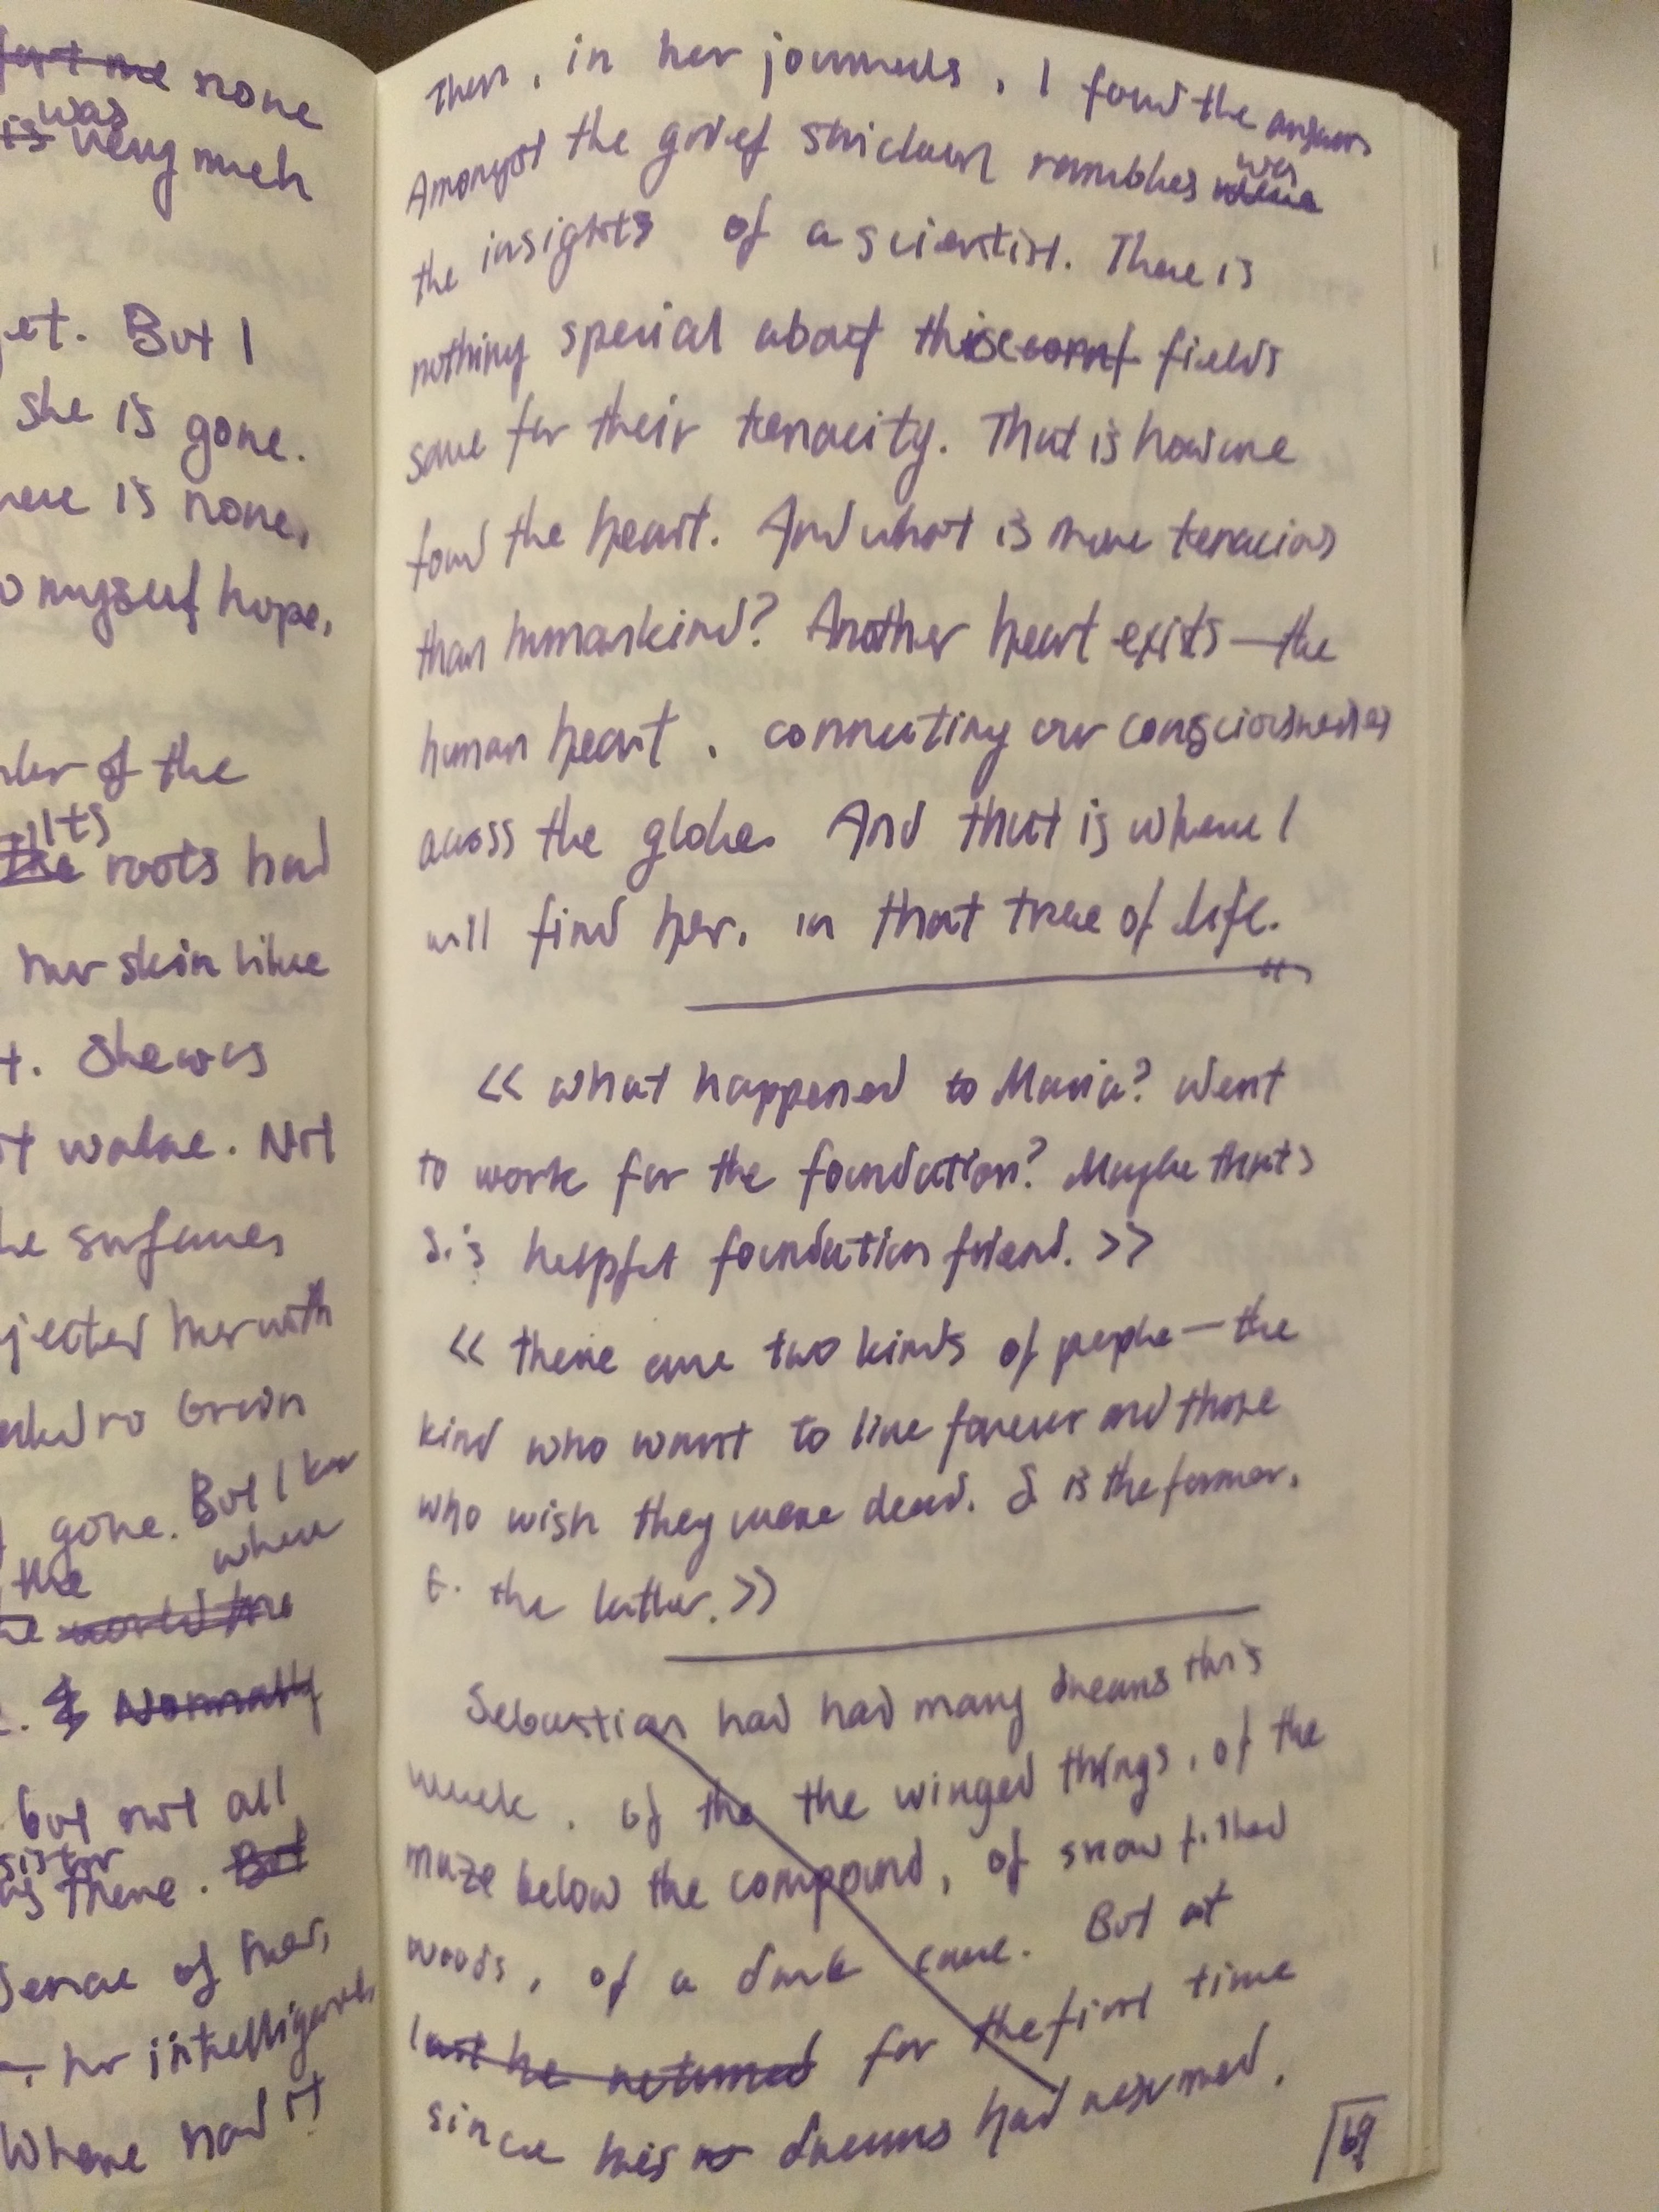 none
was
is very much
et. But I
she is gone.
ere is none,
o myself hope,
of the
its
the roots had
her skin like
t. She was
t wake. Not
he surfaces
jected her with
gone. But I know
the where
Normally
but not all
sister
as there. But
sense of her,
her intelligence
Where had it
Then, in her journals, I found the answer
Amongst the grief stricken rambles was
the insights of a scientist. There is
nothing special about fields
save for their tenacity. That is how we
found the heart. And what is more tenacious
than humankind? Another heart exists—the
human heart, connecting our consciousnesses
across the globe. And that is where I
will find her, in that tree of life.
"
<< What happened to Maria? Went
to work for the foundation? Maybe that's
S.'s helpful foundation friend. >>
<< There are two kinds of people—the
kind who want to live forever and those
who wish they were dead. S is the former,
E. the latter. >>
Sebastian had had many dreams this
week, of the the winged things, of the
maze below the compound, of snow filled
woods, of a dark cave. But at
last he returned for the first time
since his dreams had resumed.
69